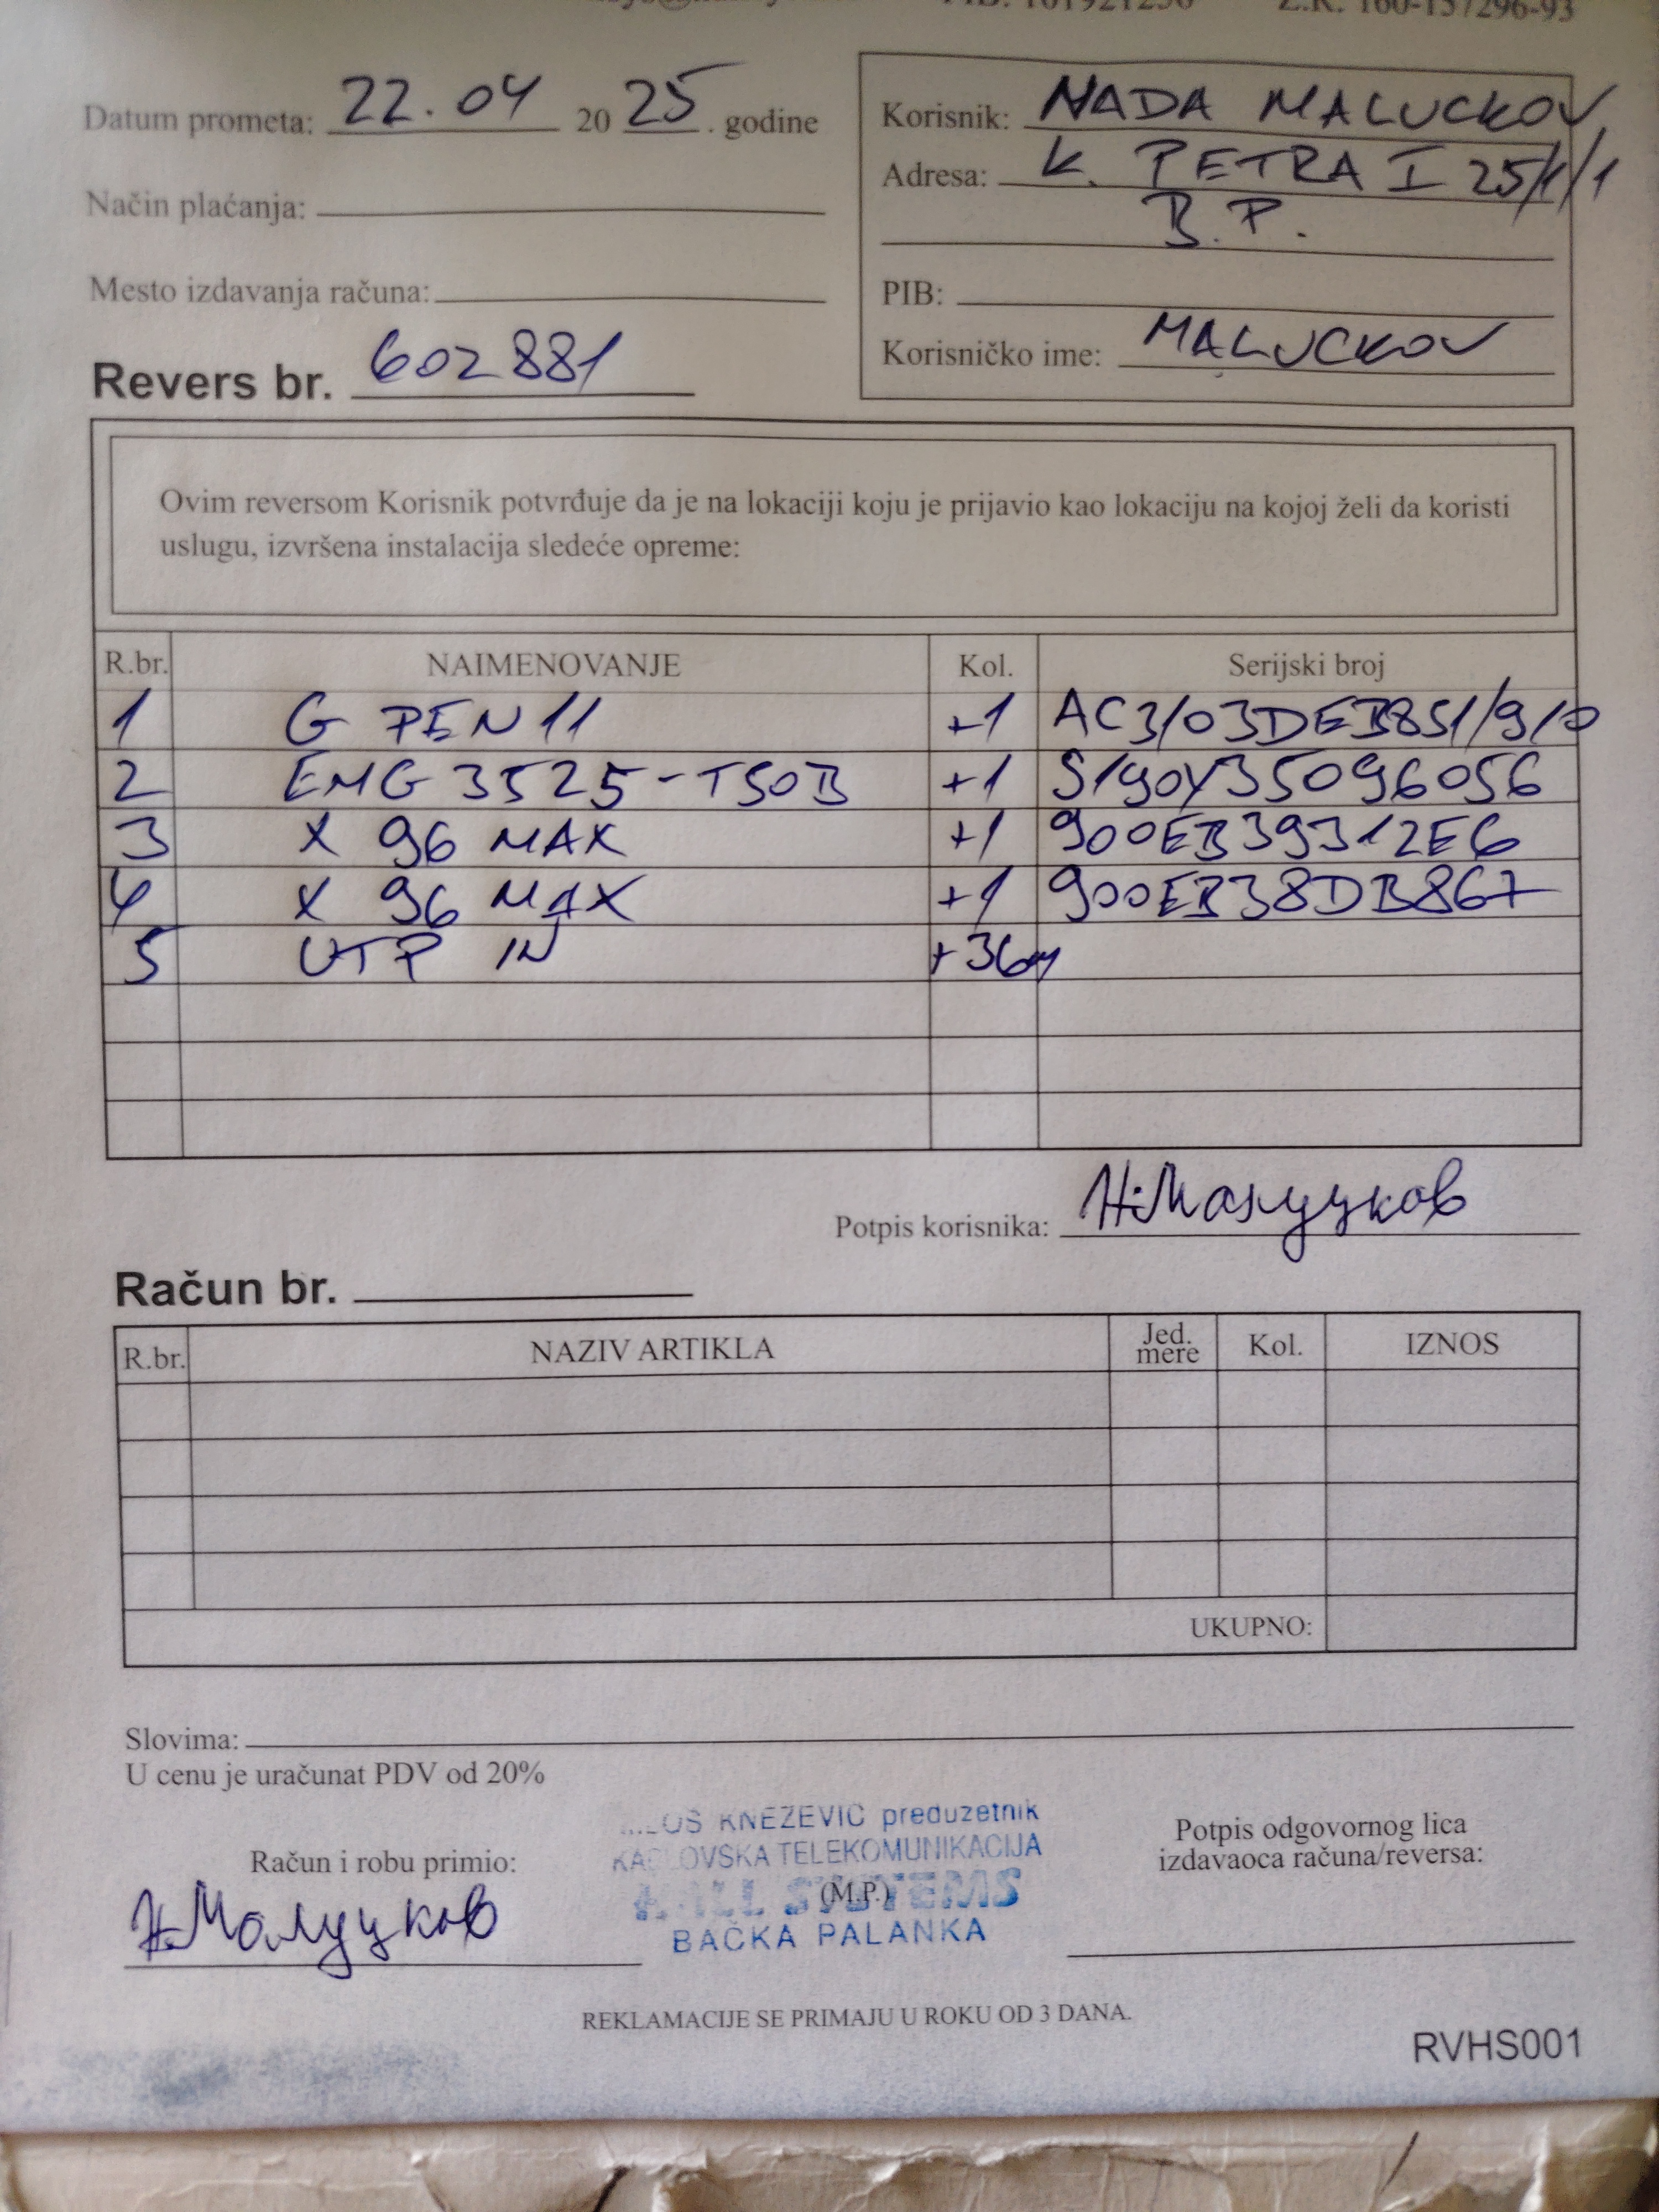 PIB: 101921236 Ž.R. 160-157296-93
Datum prometa: 22.04 2025. godine
Način plaćanja:
Mesto izdavanja računa:
Revers br. 602881
Korisnik: NADA MALUCKOV
Adresa: K. PETRA I 25/1/1
B.P.
PIB:
Korisničko ime: MALUCKOV
Ovim reversom Korisnik potvrđuje da je na lokaciji koju je prijavio kao lokaciju na kojoj želi da koristi
uslugu, izvršena instalacija sledeće opreme:
R.br. NAIMENOVANJE Kol. Serijski broj
1 G PEN 11 +1 AC3103DEB851/9/0
2 EMG 3525-T50B +1 S190Y35096056
3 X 96 MAX +1 900EB39312E6
4 X 96 MAX +1 900EB38DB867
5 UTP IN +36m
Potpis korisnika: Н.Малуцков
Račun br.
R.br. NAZIV ARTIKLA Jed. mere Kol. IZNOS
UKUPNO:
Slovima:
U cenu je uračunat PDV od 20%
KNEZEVIC preduzetnik
TELEKOMUNIKACIJA
SYSTEMS
(M.P.)
BAČKA PALANKA
Račun i robu primio:
Н.Малуцков
Potpis odgovornog lica
izdavaoca računa/reversa:
REKLAMACIJE SE PRIMAJU U ROKU OD 3 DANA.
RVHS001